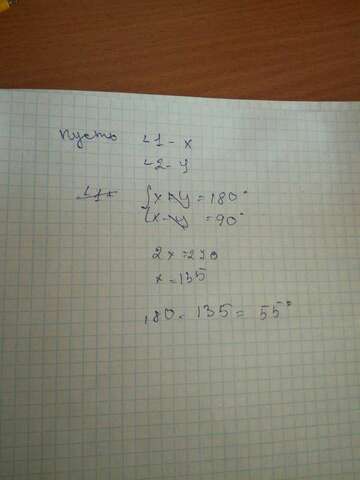 Пусть ∠1 - x
∠2 - y
{x + y = 180°
{x - y = 90°
2x = 270
x = 135
180 - 135 = 55°